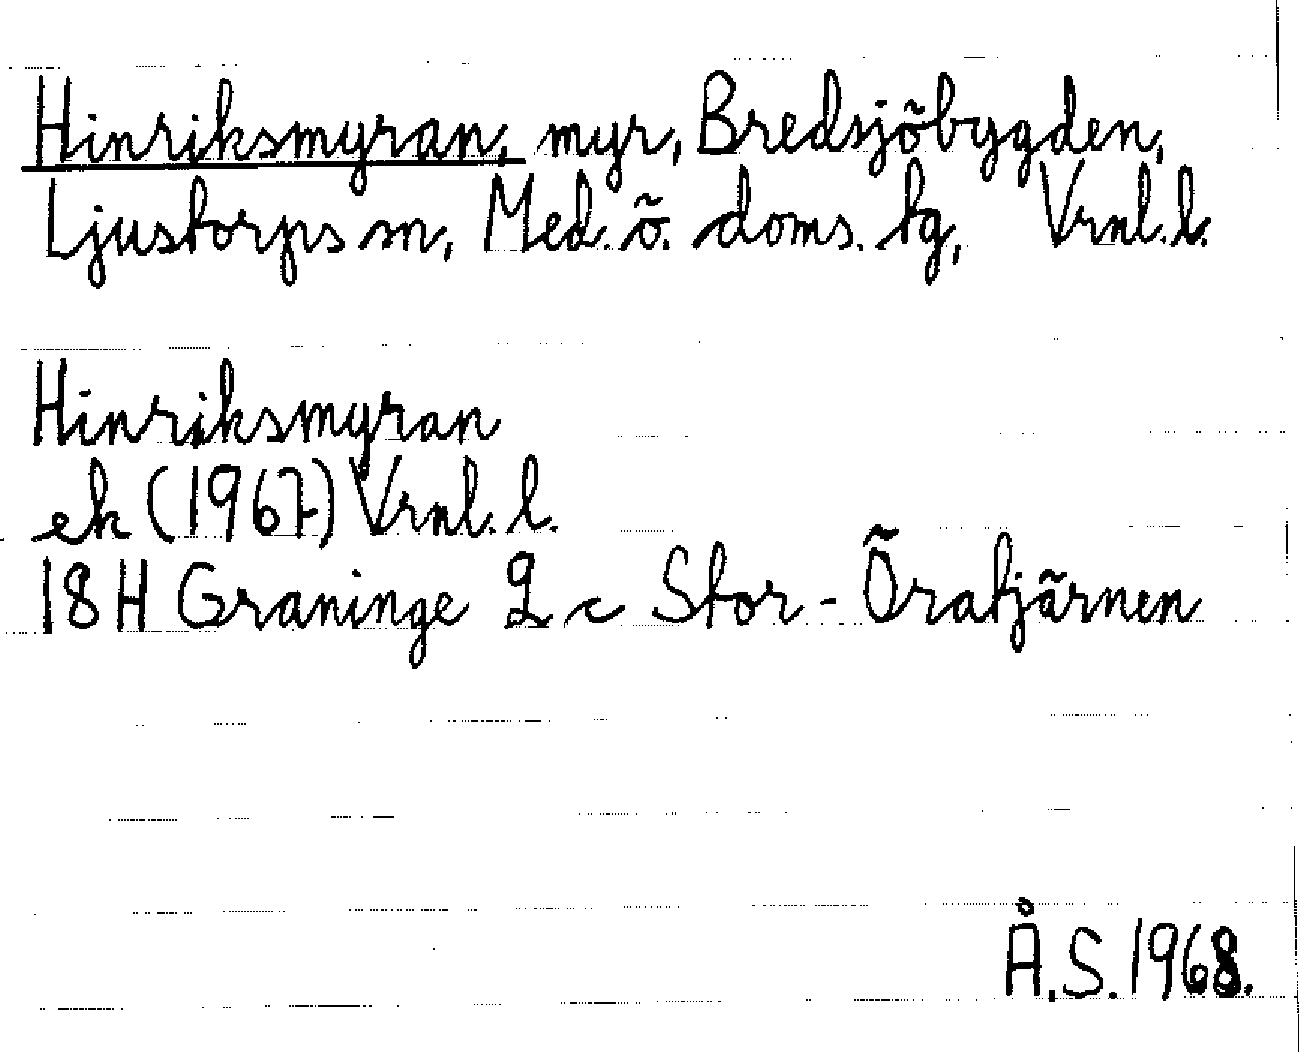 Hinriksmyran, myr, Bredsjöbygden,
Ljustorps sn, Med. ö. doms. tg, Vrnl. l.
Hinriksmyran
ek (1967) Vrnl. l.
18H Graninge 2 c Stor-Öratjärnen
Å.S. 1968.